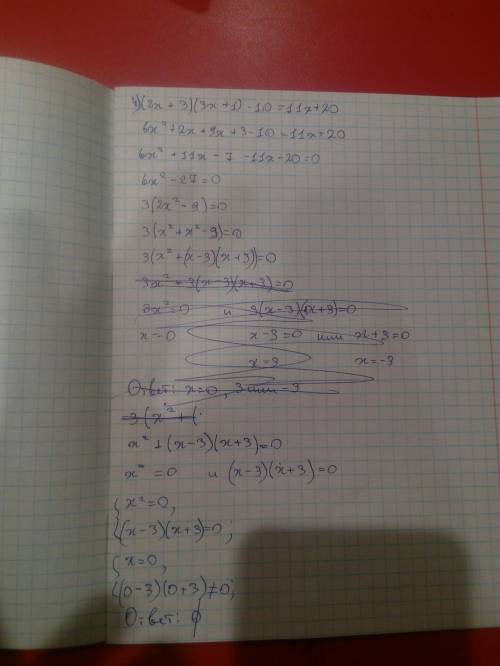 4) (2x + 3)(3x + 1) - 10 = 11x + 20
6x² + 2x + 9x + 3 - 10 = 11x + 20
6x² + 11x - 7 - 11x - 20 = 0
6x² - 27 = 0
3(2x² - 9) = 0
3(x² + x² - 9) = 0
3(x² + (x - 3)(x + 3)) = 0
3x² + 3(x - 3)(x + 3) = 0
3x² = 0 и 3(x - 3)(x + 3) = 0
x = 0 x - 3 = 0 или x + 3 = 0
x = 3 x = -3
Ответ: x = 0, 3 или -3
3(x² + (
x² + (x - 3)(x + 3) = 0
x² = 0 и (x - 3)(x + 3) = 0
{ x² = 0,
{ (x - 3)(x + 3) = 0;
{ x = 0,
{ (0 - 3)(0 + 3) ≠ 0;
Ответ: ∅